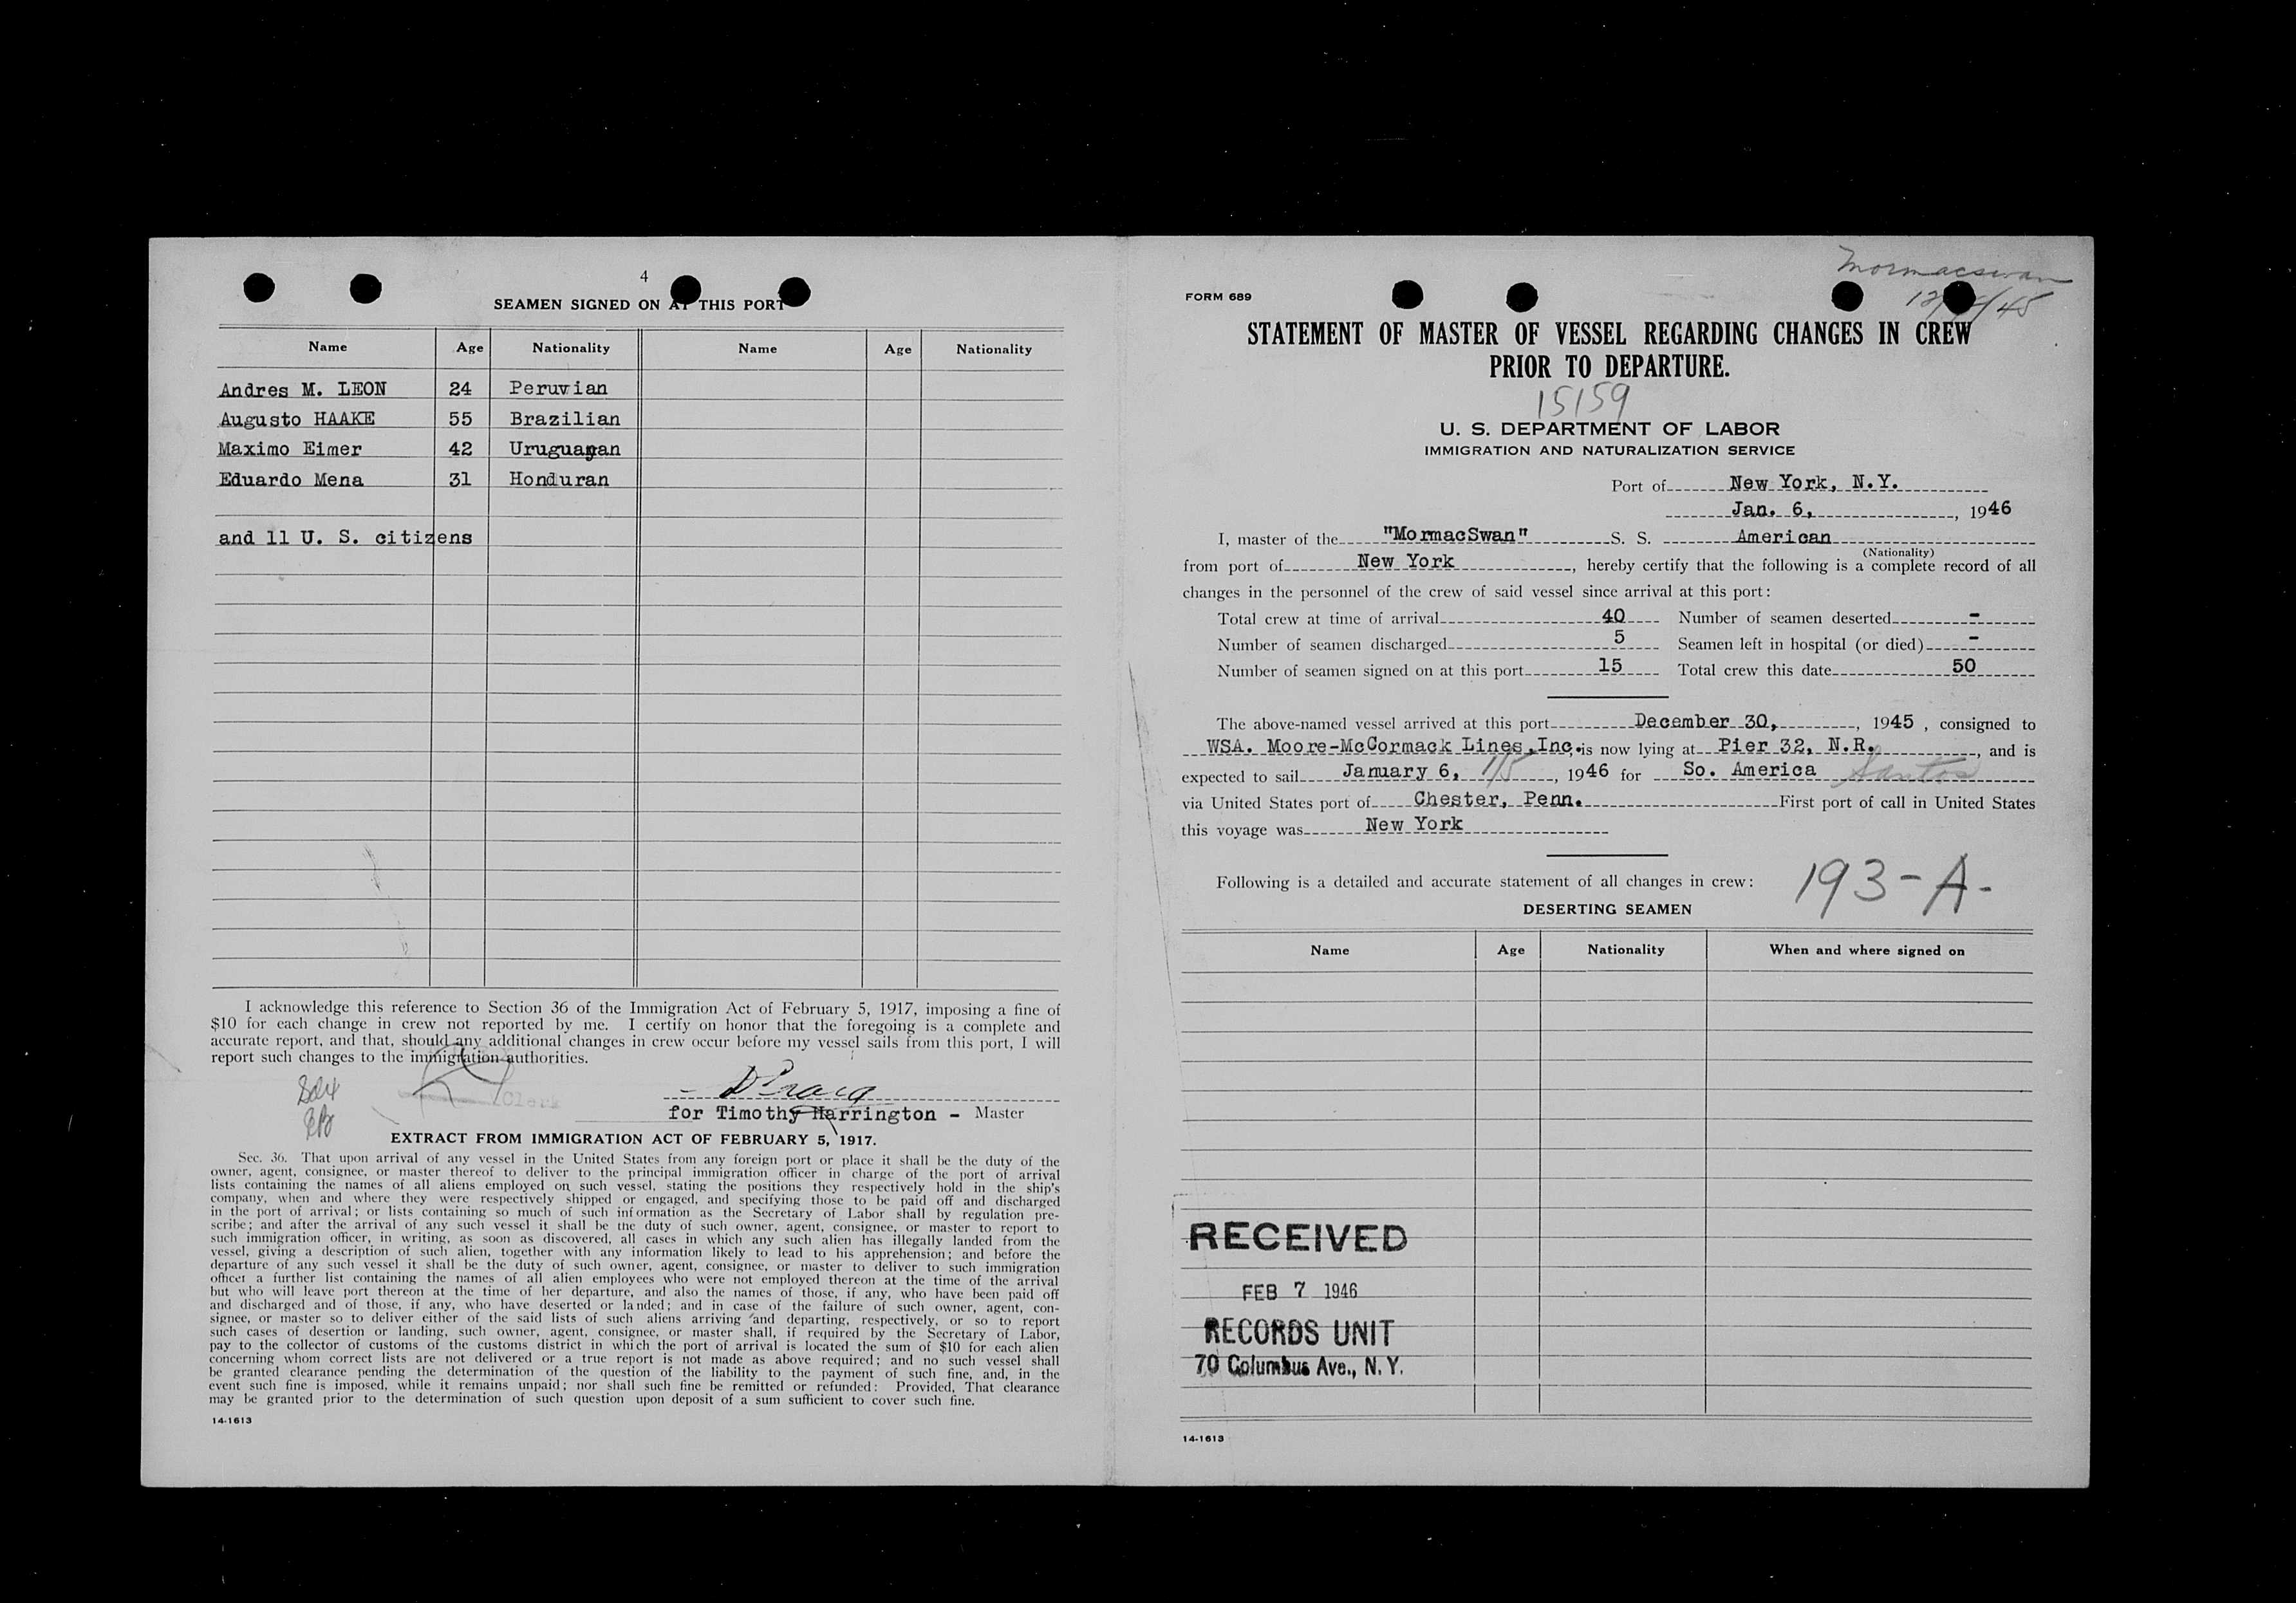 4
SEAMEN SIGNED ON AT THIS PORT
Name Age Nationality Name Age Nationality
Andres M. LEON 24 Peruvian
Augusto HAAKE 55 Brazilian
Maximo Eimer 42 Uruguayan
Eduardo Mena 31 Honduran
and 11 U. S. citizens
I acknowledge this reference to Section 36 of the Immigration Act of February 5, 1917, imposing a fine of
$10 for each change in crew not reported by me. I certify on honor that the foregoing is a complete and
accurate report, and that, should any additional changes in crew occur before my vessel sails from this port, I will
report such changes to the immigration authorities.
Clerk
for Timothy Harrington - Master
EXTRACT FROM IMMIGRATION ACT OF FEBRUARY 5, 1917.
Sec. 36. That upon arrival of any vessel in the United States from any foreign port or place it shall be the duty of the
owner, agent, consignee, or master thereof to deliver to the principal immigration officer in charge of the port of arrival
lists containing the names of all aliens employed on such vessel, stating the positions they respectively hold in the ship's
company, when and where they were respectively shipped or engaged, and specifying those to be paid off and discharged
in the port of arrival; or lists containing so much of such information as the Secretary of Labor shall by regulation pre-
scribe; and after the arrival of any such vessel it shall be the duty of such owner, agent, consignee, or master to report to
such immigration officer, in writing, as soon as discovered, all cases in which any such alien has illegally landed from the
vessel, giving a description of such alien, together with any information likely to lead to his apprehension; and before the
departure of any such vessel it shall be the duty of such owner, agent, consignee, or master to deliver to such immigration
officer a further list containing the names of all alien employees who were not employed thereon at the time of the arrival
but who will leave port thereon at the time of her departure, and also the names of those, if any, who have been paid off
and discharged and of those, if any, who have deserted or landed; and in case of the failure of such owner, agent, con-
signee, or master so to deliver either of the said lists of such aliens arriving and departing, respectively, or so to report
such cases of desertion or landing, such owner, agent, consignee, or master shall, if required by the Secretary of Labor,
pay to the collector of customs of the customs district in which the port of arrival is located the sum of $10 for each alien
concerning whom correct lists are not delivered or a true report is not made as above required; and no such vessel shall
be granted clearance pending the determination of the question of the liability to the payment of such fine, and, in the
event such fine is imposed, while it remains unpaid; nor shall such fine be remitted or refunded: Provided, That clearance
may be granted prior to the determination of such question upon deposit of a sum sufficient to cover such fine.
14-1613
Mormacswan
FORM 689
STATEMENT OF MASTER OF VESSEL REGARDING CHANGES IN CREW
PRIOR TO DEPARTURE.
15159
U. S. DEPARTMENT OF LABOR
IMMIGRATION AND NATURALIZATION SERVICE
Port of New York, N.Y.
Jan. 6, , 1946
I, master of the "MormacSwan" S. S. American
(Nationality)
from port of New York , hereby certify that the following is a complete record of all
changes in the personnel of the crew of said vessel since arrival at this port:
Total crew at time of arrival 40 Number of seamen deserted -
Number of seamen discharged 5 Seamen left in hospital (or died) -
Number of seamen signed on at this port 15 Total crew this date 50
The above-named vessel arrived at this port December 30, , 1945 , consigned to
WSA. Moore-McCormack Lines,Inc. is now lying at Pier 32, N.R. , and is
expected to sail January 6, 1/5 , 1946 for So. America Santos
via United States port of Chester, Penn. First port of call in United States
this voyage was New York
Following is a detailed and accurate statement of all changes in crew: 193-A-
DESERTING SEAMEN
Name Age Nationality When and where signed on
RECEIVED
FEB 7 1946
RECORDS UNIT
70 Columbus Ave., N.Y.
14-1613